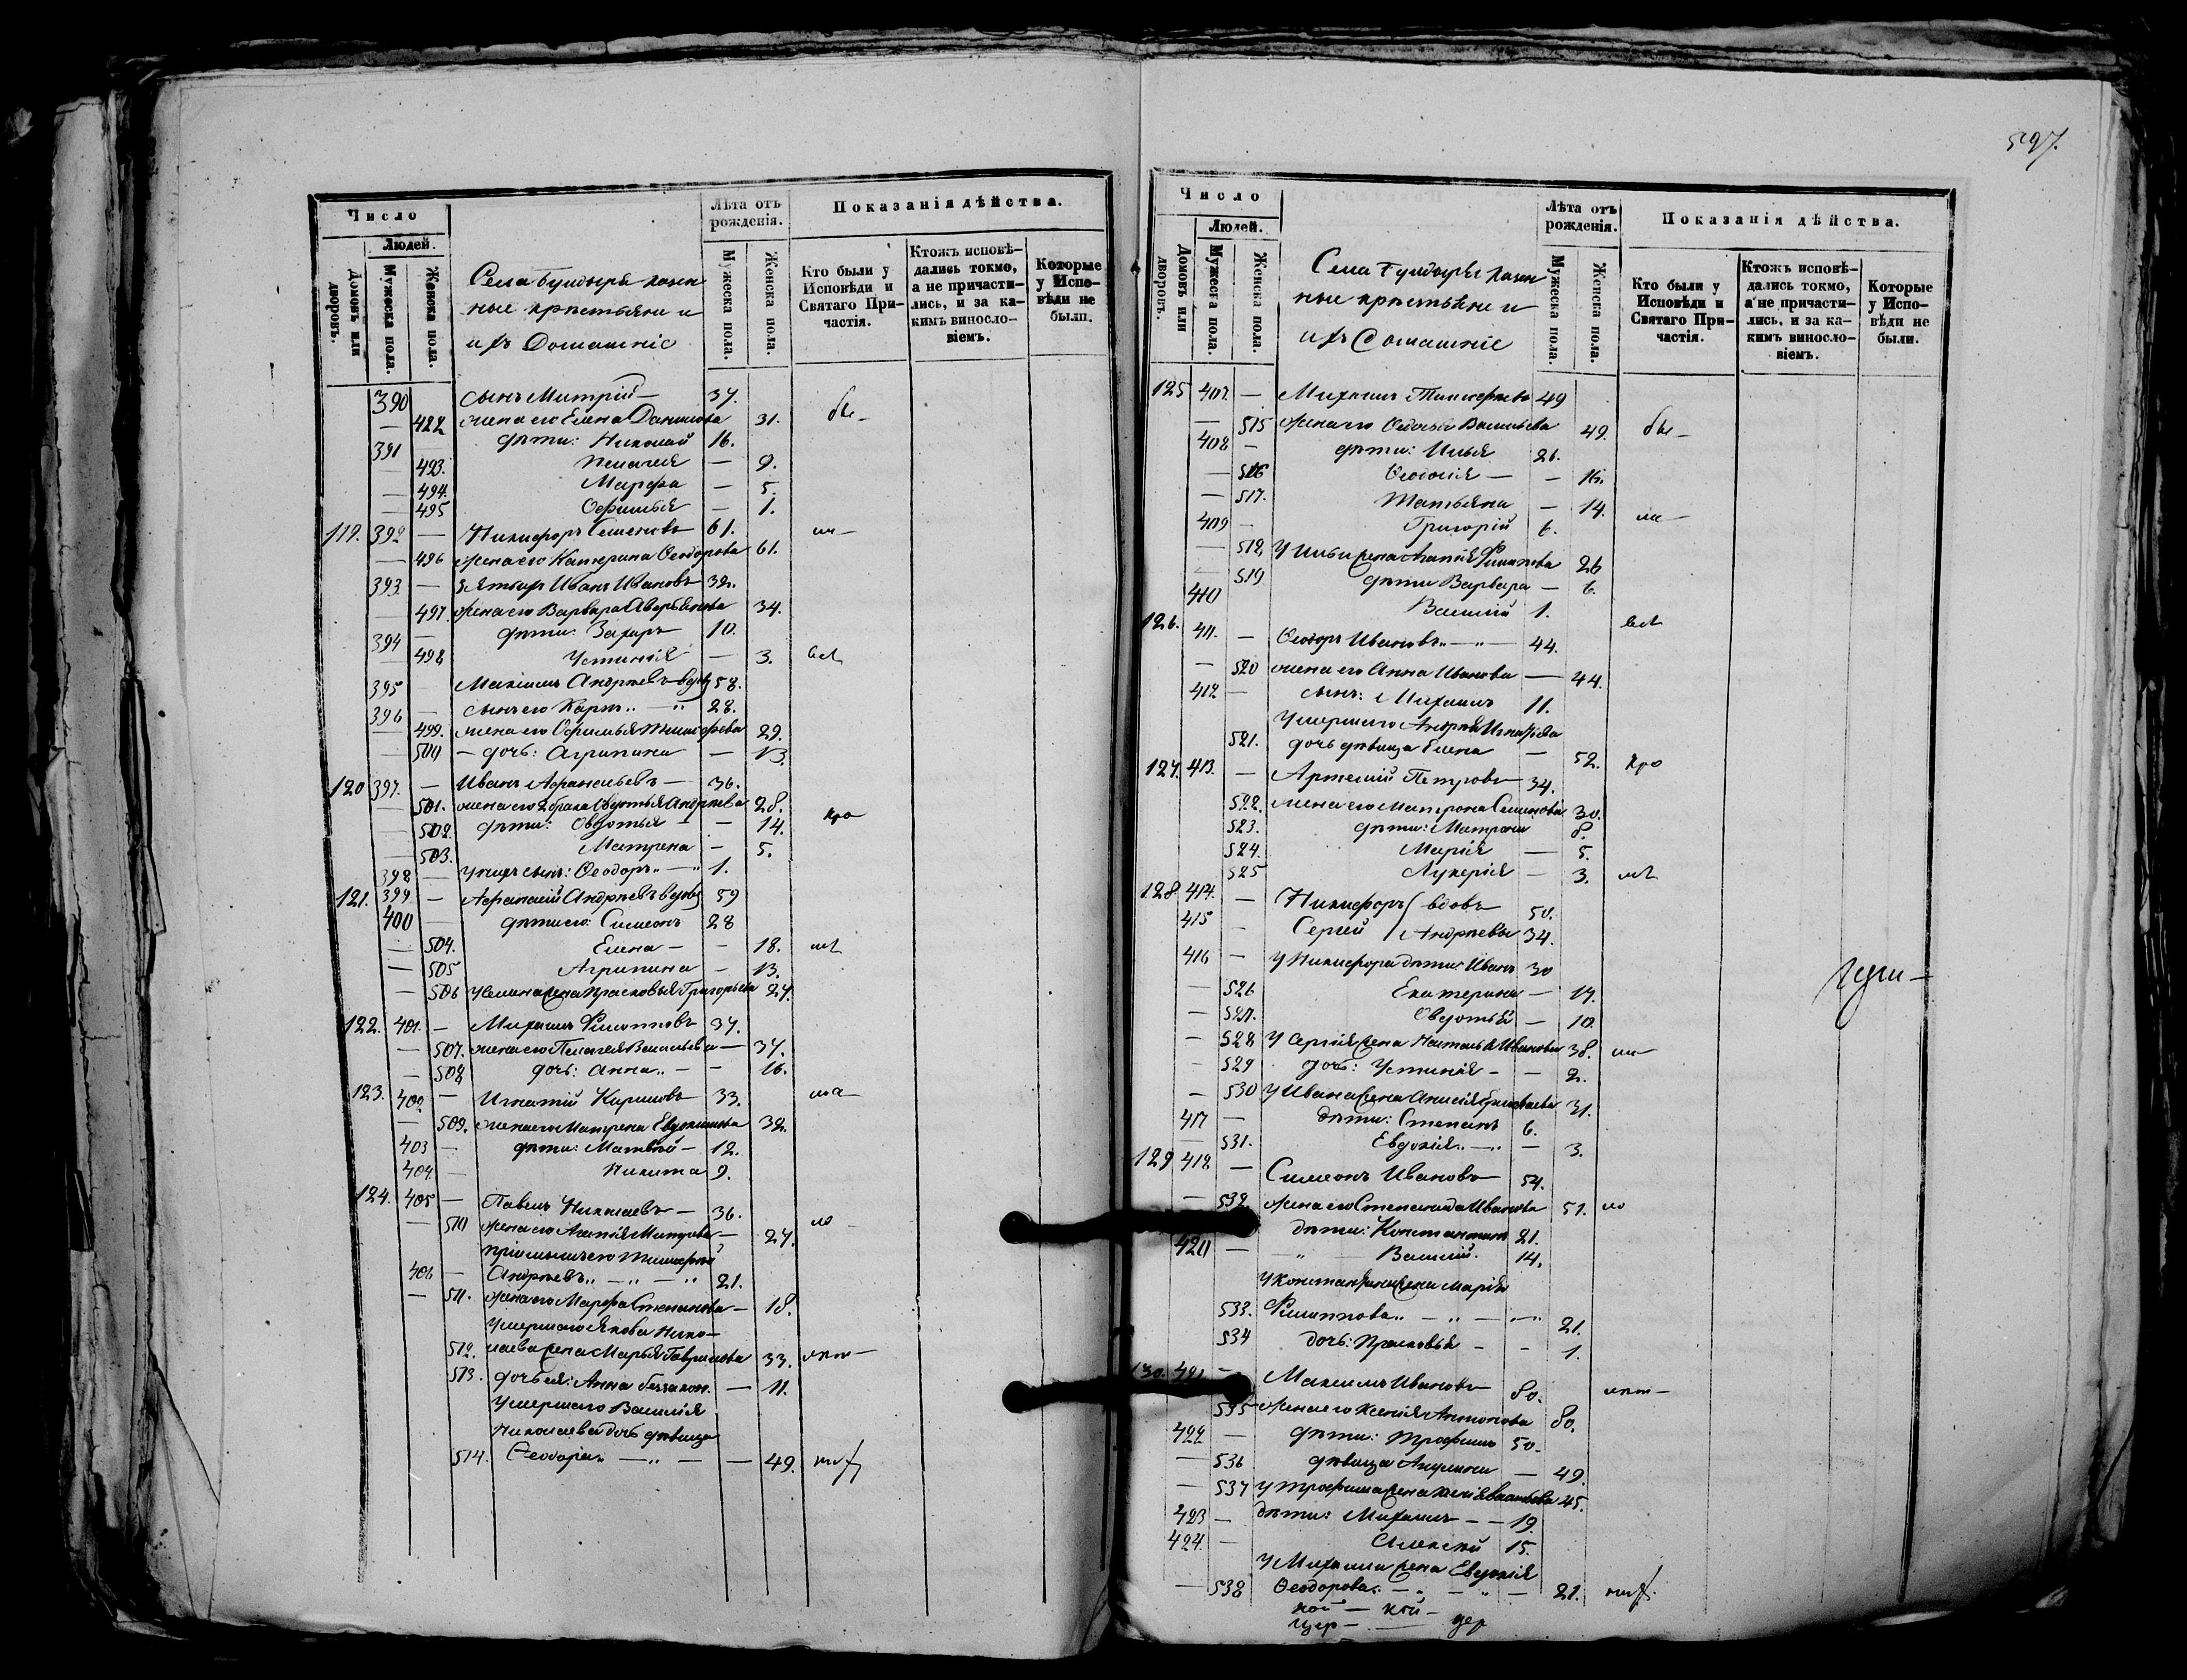 597.
Число
Людей.
Домовъ или дворовъ.
Мужеска пола.
Женска пола.
Села Бундыря казен
ные крестьяне и
ихъ Домашніе
Лѣта отъ рожденія.
Мужеска пола.
Женска пола.
Показанія дѣйства.
Кто были у Исповѣди и Святаго При-
частія.
Ктожъ исповѣ-
дались токмо,
а не причасти-
лись, и за ка-
кимъ виносло-
віемъ.
Которые
у Испо-
вѣди не
были.
390 сынъ Митрій — 37.
— 422 жена его Елена Данилова 31. бы —
391 дѣти: Николай 16.
— 493. Пелагея — 9.
— 494. Марфа — 5.
— 495 Офимья — 1.
119. 392 — Никифоръ Семеновъ 61. ли —
— 496 жена его Катерина Ѳеодорова 61.
393 — зять ихъ Иванъ Ивановъ 32.
497 жена его Варвара Аверьянова 34.
394 — дѣти: Захаръ 10.
— 498 Устинія — 3. всѣ
395 Максимъ Андреевъ вдовъ 58.
396 — сынъ его Карпъ „ — „ 28.
— 499. жена его Офимья Тимофеева 29.
500 — дочь: Агрипина — 13.
120 397. — Иванъ Афанасьевъ — 36.
— 501. жена его 2 брака Овдотья Андреева 28.
— 502. дѣти: Овдотья — — 14. кро
— 503. Матрена — 5.
398 — у нихъ сынъ: Ѳеодоръ „ — „ 1.
121. 399 — Афанасій Андреевъ вдовъ 59
400 — дѣти его: Симеонъ 28
— 504. Елена — — 18. мѣ
— 505 Агрипина — 13.
— 506 у Семена жена Прасковья Григорьева 27.
122. 401. — Михаилъ Филипповъ 37.
— 507. жена его Пелагея Васильева — 37.
— 508 дочь: Анна „ — — 16.
123. 402 — Игнатій Кириловъ 33. ма —
— 509. жена его Матрена Евдокимова 32.
403 — дѣти: Матвѣй — 12.
404. — Никита 9.
124. 405 — Павелъ Николаевъ — 36.
— 510 жена его Агапія Митрова — 27. ло —
пріемышъ его Тимофей
406 — Андреевъ „ — „ — „ 21.
— 511. жена его Марфа Степанова — 18.
Умершаго Якова Нико-
512. лаева жена Марья Гаврилова 33. лѣт —
513. дочь ея: Анна беззакон. — 11.
Умершаго Василія
Николаева дочь дѣвица
514. Ѳеодора „ — „ — — 49.
Число
Людей.
Домовъ или дворовъ.
Мужеска пола.
Женска пола.
Села Бундыря казен
ные крестьяне и
ихъ Домашніе
Лѣта отъ рожденія.
Мужеска пола.
Женска пола.
Показанія дѣйства.
Кто были у
Исповѣди и
Святаго При-
частія.
Ктожъ исповѣ-
дались токмо,
а не причасти-
лись, и за ка-
кимъ виносло-
віемъ.
Которые
у Испо-
вѣди не
были.
125 407. — Михаилъ Тимофеевъ 49
— 515 жена его Ѳедосья Васильева 49. бы —
408 — дѣти: Илья 26.
— 516 Ѳеодосія — — 16.
— 517. Татьяна — 14. ли —
409 — Григорій 6.
— 518 у Ильи жена Агапія Филипова 26
— 519 дѣти Варвара — 6.
410 Василій 1. всѣ
126. 411. — Ѳеодоръ Ивановъ „ — „ — 44.
— 520 жена его Анна Иванова — 44.
412 — сынъ: Михаилъ 11.
Умершаго Андрея Игнатьева
521. дочь дѣвица Елена — 52. кро
127. 413. — Артемій Петровъ — 34.
522. жена его Матрона Семенова 30.
523. дѣти: Матрона 8.
524. Марія — 5.
525 Лукерія — 3. мѣ
128 414. — Никифоръ вдовъ 50.
415 — Сергей Андреевы 34.
416 — у Никифора дѣти: Иванъ 30
— 526 Екатерина — 17.
— 527. Овдотья — 10.
— 528 у Сергія жена Наталья Иванова 38.
— 529 дочь: Устинія — — 2.
— 530 у Ивана жена Анисія 31.
417 — дѣти: Степанъ 6.
— 531. Евдокія „ — „ — 3.
129 418 — Симеонъ Ивановъ 54.
— 532. жена его Степанида Иванова 51. ло
дѣти: Константинъ 21.
420 — „ Василій. 14.
у Константина жена Марія
533. Филиппова „ — „ — „ — „ 21.
534 дочь: Прасковья — — 1.
130. 421 — Максимъ Ивановъ 80. лѣт —
535 жена его Ксенія Антонова 80.
422 — дѣти: Трофимъ 50.
— 536 дѣвица Акулина — 49.
— 537 у Трофима жена Ксенія 45.
423 — дѣти: Михаилъ — — 19.
424. — Алексѣй 15.
у Михаила жена Евдокія
— 538 Ѳеодорова „ — „ — „ — 21.